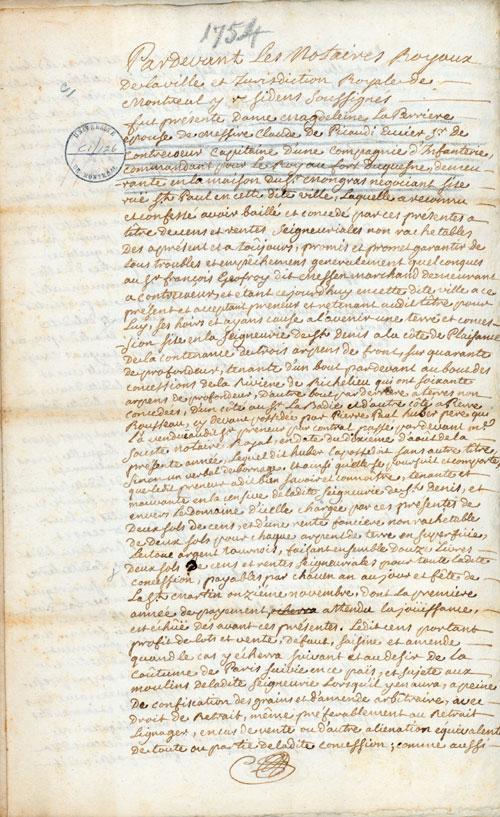 1754
Pardevant Les Notaires Royaux
De la ville et Jurisdiction Royale de
Montreal y residens Soussignés
fut presente Dame magdeleine La Perriere
Epouse de messire Claude De Picaudi Ecuier Sr. de
Contrecoeur Capitaine D'une Compagnie D'Infanterie,
commandant pour le Roy au fort Duquesne, demeu-
rante en la maison du Sr. mongras negociant Sise
rue St. Paul en cette dite ville, Laquelle a reconnu
et confessé avoir baillé et concedé par ces presentes a
titre de cens et rentes Seigneuriales non rachetables
des apresent et a toujours, promis et promet garantir de
tous troubles et empêchemens generalement quelconques
au Sr. françois Geofroy dit marchand demeurant
a contrecoeur, et étant ce jourd'huy en cette dite ville a ce
present et acceptant preneur et retenant audit titre pour
Luy, ses hoirs et ayans cause a l'avenir une terre et conces-
sion sise en la Seigneurie de St. denis a la côte de Plaisance
De la contenance de trois arpens de front, sur quarante
de profondeur; tenante d'un bout pardevant au bout des
concessions de la Riviere de Richelieu qui ont soixante
arpens de profondeur, d'autre bout par derriere a terres non
concedées, d'un côté au Sr. La Badie et d'autre côté a Pierre
Rousseau, cy devant possedée par Pierre Paul huber pere qui
L'a vendue audit Sr. preneur par contrat passé pardevant me.
notaire Royal, en date du douxieme d'aoust de la
presente année, lequel dit huber La possedoit sans autre titre,
Sinon un verbal de bornage, et ainsi qu'elle se poursuit et comporte
que ledit preneur a dit bien savoir et connaitre, tenante et
mouvante en la censive de ladite Seigneurie de St. denis, et
envers Le domaine d'icelle chargée par ces presentes de
Deux sols de cens, et d'une rente fonciere non rachetable
de Deux sols pour chaque arpent de terre en superficie,
Le tout argent tournois, faisant ensemble douze Livres
Deux sols De cens et rentes Seigneuriales pour toute ladite
concession, payables par chacun an au jour et fête de
La St. martin onzieme novembre, dont la premiere
année de payement echerra attendu la jouissance,
est échüe des avant ces presentes. Ledit cens portant
profit de lots et vente, défaut, saisine et amende
quand le cas y echerra suivant et au desir de La
Coutume de Paris suivie en ce païs, et sujete aux
moulins de ladite Seigneurie Lorsqu'il y en aura, a peine
De confiscation des grains et d'amende arbitraire, avec
Droit de Retrait, même préferablement au Retrait
Lignager, en cas de vente ou d'autre alienation equivalente
De toute ou partie de ladite concession; comme aussi